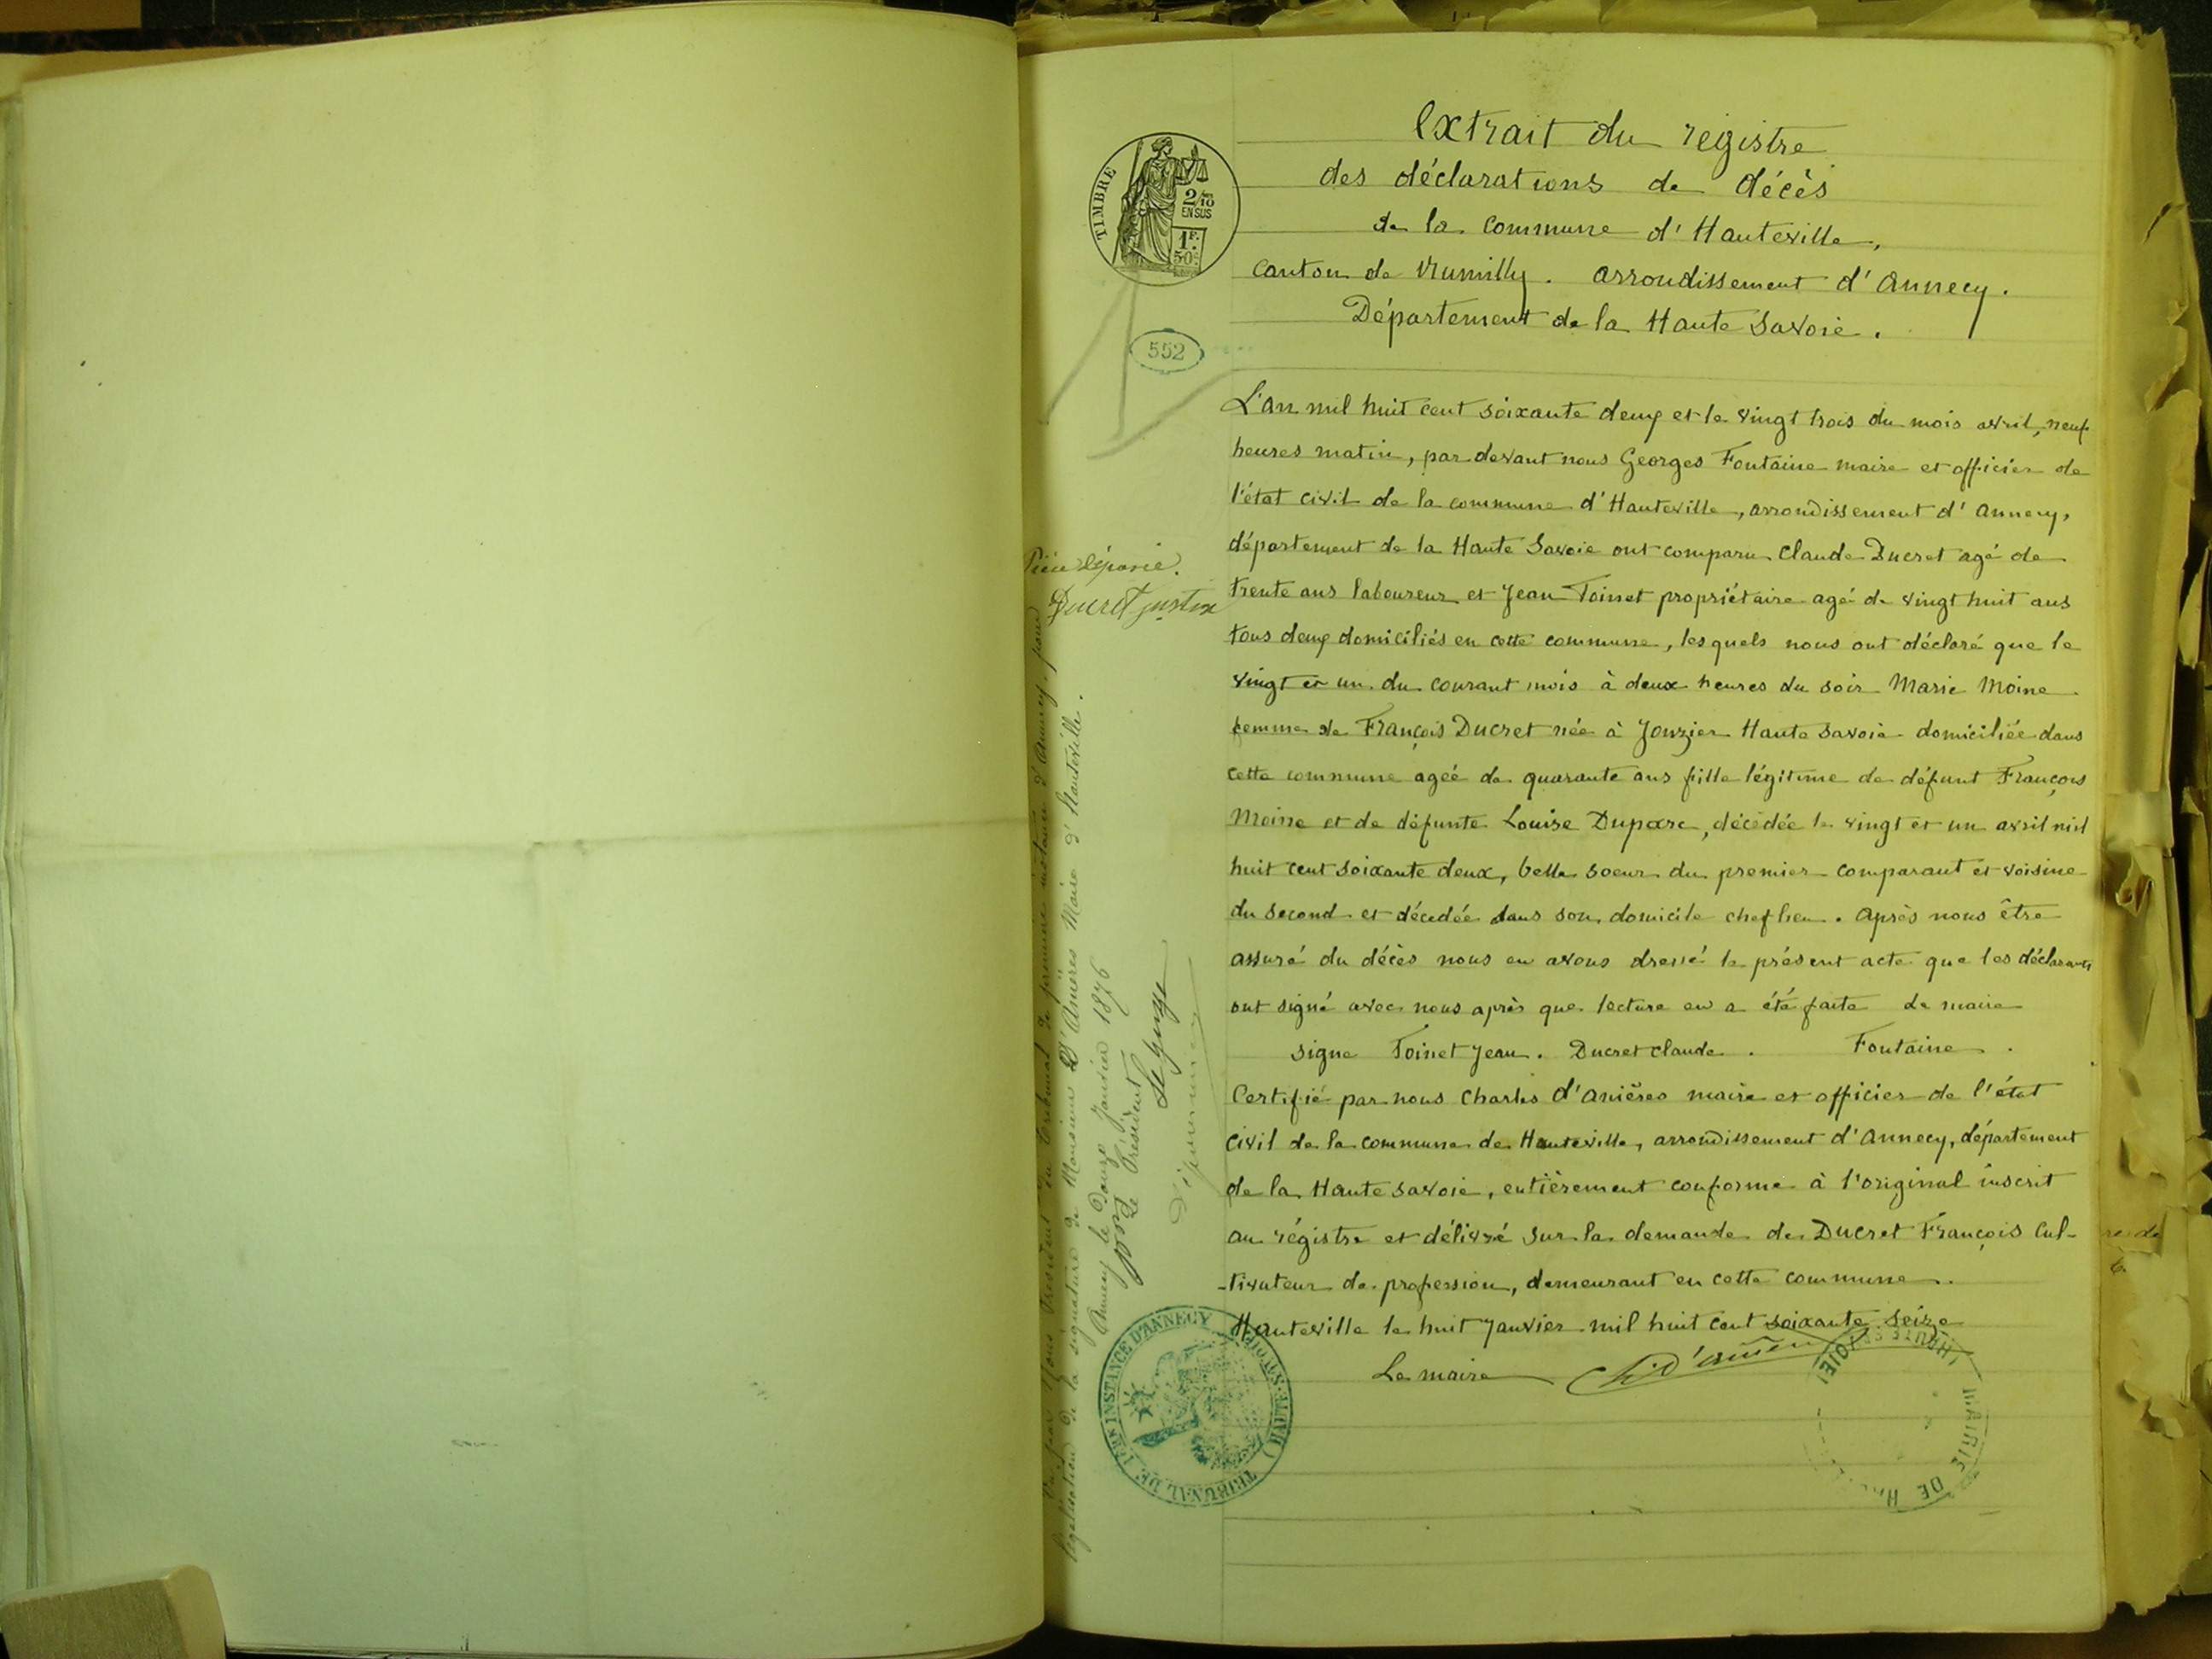 Extrait du régistre
des déclarations de décès
de la commune d'Hauteville,
canton de Rumilly. arrondissement d'Annecy.
Département de la Haute Savoie.
TIMBRE
2/10
EN SUS
1F.
50c
552
L'an mil huit cent soixante deux et le vingt trois du mois avril, neuf
heures matin, par devant nous Georges Fontaine maire et officier de
l'état civil de la commune d'Hauteville, arrondissement d'Annecy,
département de la Haute Savoie ont comparu Claude Ducret agé de
trente ans laboureur et Jean Toinet propriétaire agé de vingt huit ans
tous deux domiciliés en cette commune, lesquels nous ont déclaré que le
vingt et un du courant mois à deux heures du soir Marie Moine
femme de François Ducret née à Jonzier Haute Savoie domiciliée dans
cette commune agée de quarante ans fille légitime de défunt François
Moine et de défunte Louise Duparc, décédée le vingt et un avril mil
huit cent soixante deux, belle soeur du premier comparant et voisine
du second et décédée dans son domicile chef lieu. Après nous être
assuré du décès nous en avons dressé le présent acte que les déclarants
ont signé avec nous après que lecture en a été faite Le maire
signé Toinet Jean. Ducret Claude. Fontaine.
Certifié par nous Charles d'Anières maire et officier de l'état
civil de la commune de Hauteville, arrondissement d'Annecy, département
de la Haute Savoie, entièrement conforme à l'original inscrit
au régistre et délivré sur la demande de Ducret François cul-
-tivateur de profession, demeurant en cette commune.
Hauteville le huit Janvier mil huit cent soixante seize
Le maire Ch. D'Anières
Pièce déposée.
Ducret Justin
Vu par Nous Président du Tribunal de première instance d'Annecy, pour
légalisation de la signature de Monsieur D'Anières Maire d'Hauteville.
Annecy le douze Janvier 1876
Le Président
TRIBUNAL DE 1ÈRE INSTANCE D'ANNECY (HAUTE-SAVOIE)
MAIRIE DE
(HAUTE SAVOIE)